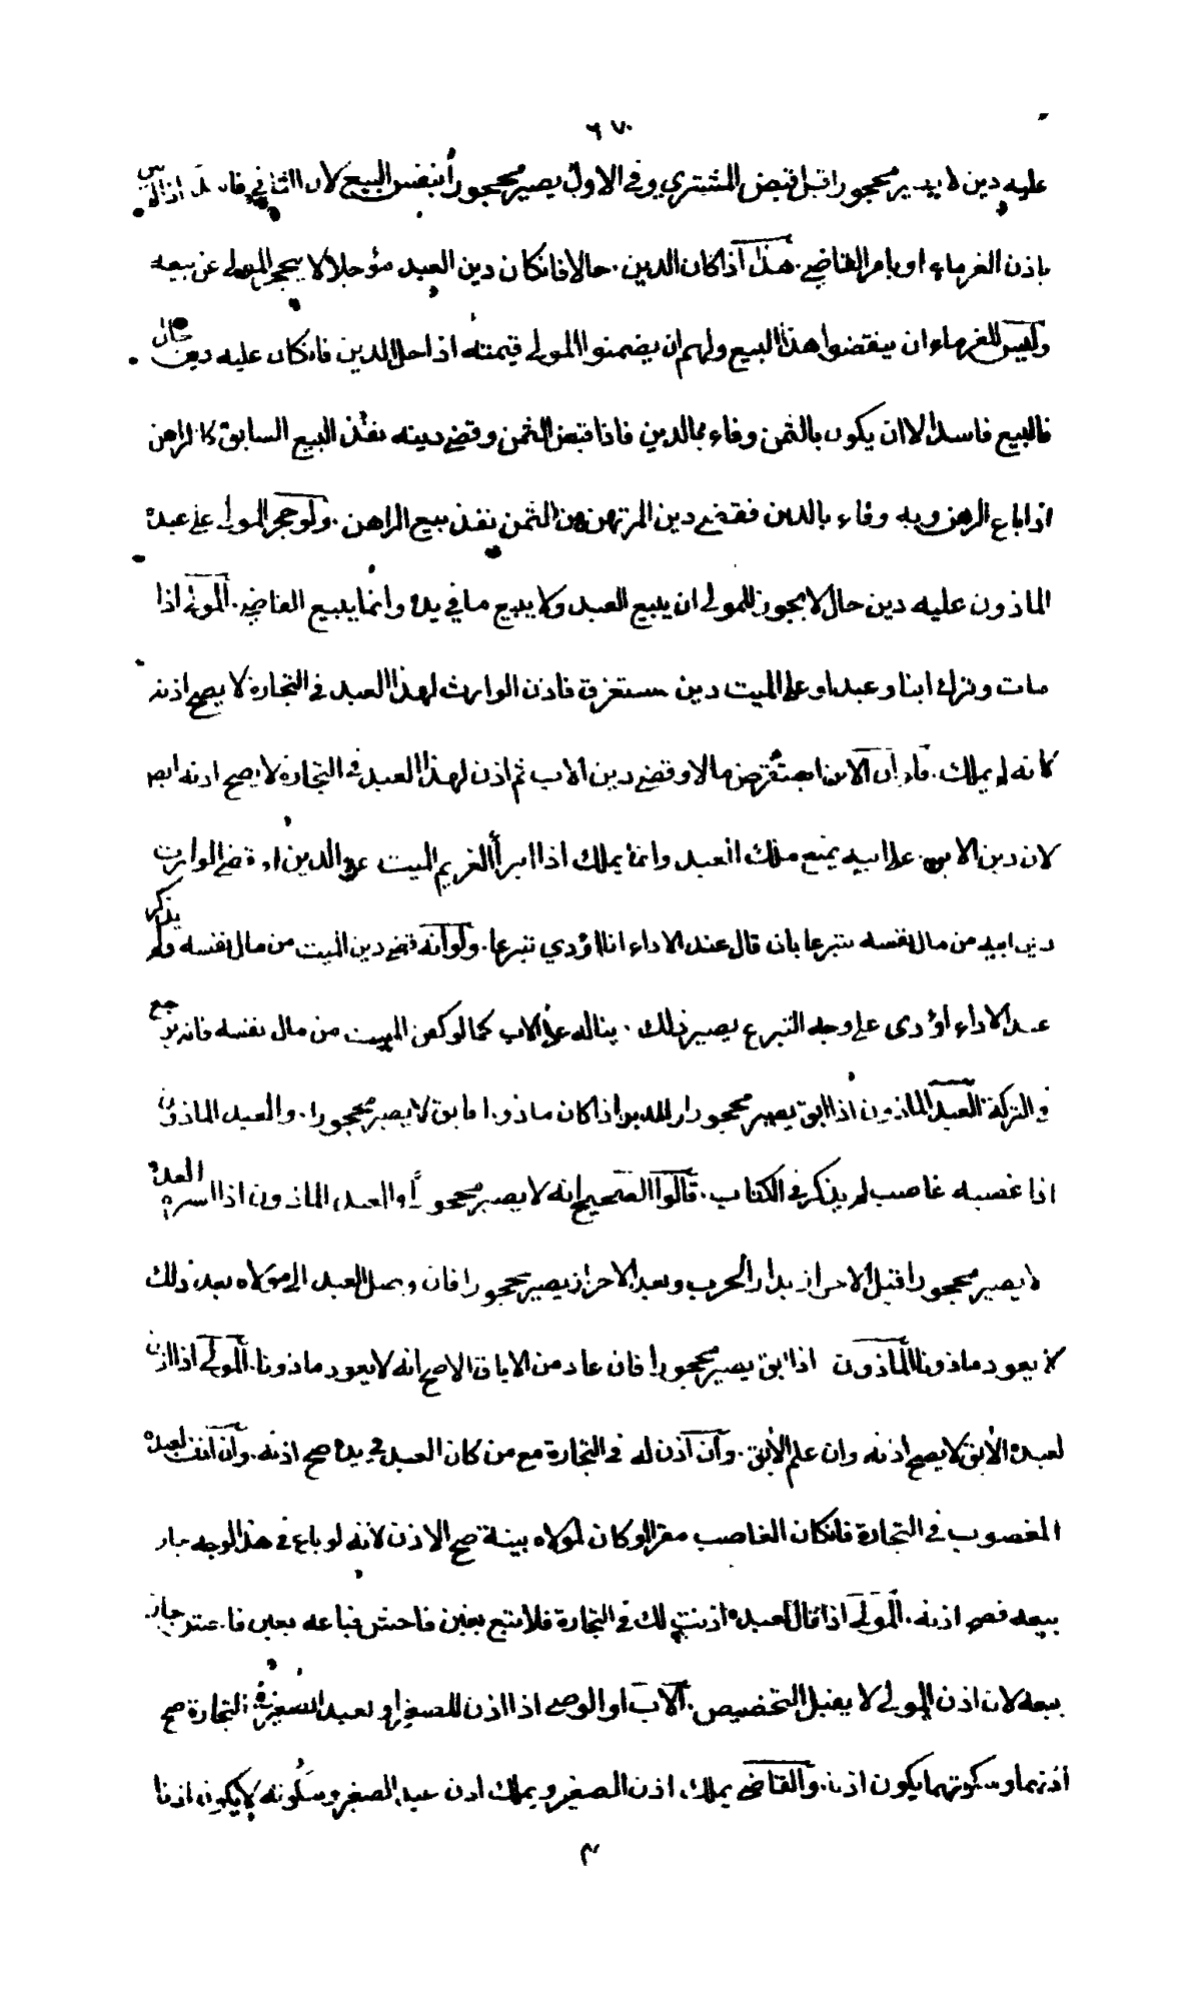 ٦٧٠
عليه دين لا يصير محجورا قبل قبض المشتري وفي الاول يصير محجورا بنفس البيع لان الثاني فاسد اذا
باذن الغرماء او بامر القاضي. هذا اذا كان الدين. حالا فانكان دين العبد مؤجلا لا يحجر المولى عن بيعه
وليس للغرماء ان ينقضوا هذا البيع ولهم ان يضمنوا المولى قيمته اذا حل الدين فانكان عليه دين حال
فالبيع فاسد الا ان يكون بالثمن وفاء بالدين فاذا قبض الثمن وقضى دينه نفذ البيع السابق كالراهن
اذا باع الرهن وبه وفاء بالدين فقضى دين المرتهن من الثمن نفذ بيع الراهن. ولو حجر المولى على عبده
الماذون عليه دين حال لا يجوز للمولى ان يبيع العبد ولا يبيع ما في يده وانما يبيع القاضي. المولى اذا
مات وترك ابنا وعبدا وعلى الميت دين مستغرق فاذن الوارث لهذا العبد في التجارة لا يصح اذنه
لانه لم يملك. فان الابن استقرض مالا وقضى دين الاب ثم اذن لهذا العبد في التجارة لا يصح اذنه ايضا
لان دين الابن على ابيه يمنع ملك العبد وانما يملك اذا ابرأ الغريم الميت عن الدين او قضى الوارث
دين ابيه من مال نفسه متبرعا بان قال عند الاداء انا اؤدي تبرعا. ولو انه قضى دين الميت من مال نفسه ولم يذكر
عند الاداء اؤدى على وجه التبرع يصير ذلك. دينا له على الاب كما لو كفن الميت من مال نفسه فانه يرجع
في التركة العبد الماذون اذا ابق يصير محجورا والمدبر اذا كان ماذونا فابق لا يصير محجورا. والعبد الماذون
اذا غصبه غاصب لم يذكر في الكتاب. قالوا الصحيح انه لا يصير محجورا والعبد الماذون اذا اسره العدو
لا يصير محجورا قبل الاحراز بدار الحرب وبعد الاحراز يصير محجورا فان وصل العبد الى مولاه بعد ذلك
لا يعود ماذونا الماذون اذا ابق يصير محجورا فان عاد من الاباق الاصح انه لا يعود ماذونا. المولى اذا اذن
لعبده الأبق لا يصح اذنه وان علم الأبق. وان اذن له في التجارة مع من كان العبد في يده صح اذنه. وان اذن لعبده
المغصوب في التجارة فانكان الغاصب مقرا او كان لمولاه بينة صح الاذن لانه لو باع في هذا الوجه جاز
بيعه فصح اذنه. المولى اذا قال لعبده اذنت لك في التجارة فلا تبع بغبن فاحش فباعه بغبن فاحش جاز
بيعه لان اذن المولى لا يقبل التخصيص. الاب او الوصي اذا اذن للصغير او لعبد الصغير في التجارة صح
اذنهما وسكوتهما يكون اذنا. والقاضي يملك اذن الصغير ويملك اذن عبد الصغير وسكوته لا يكون اذنا